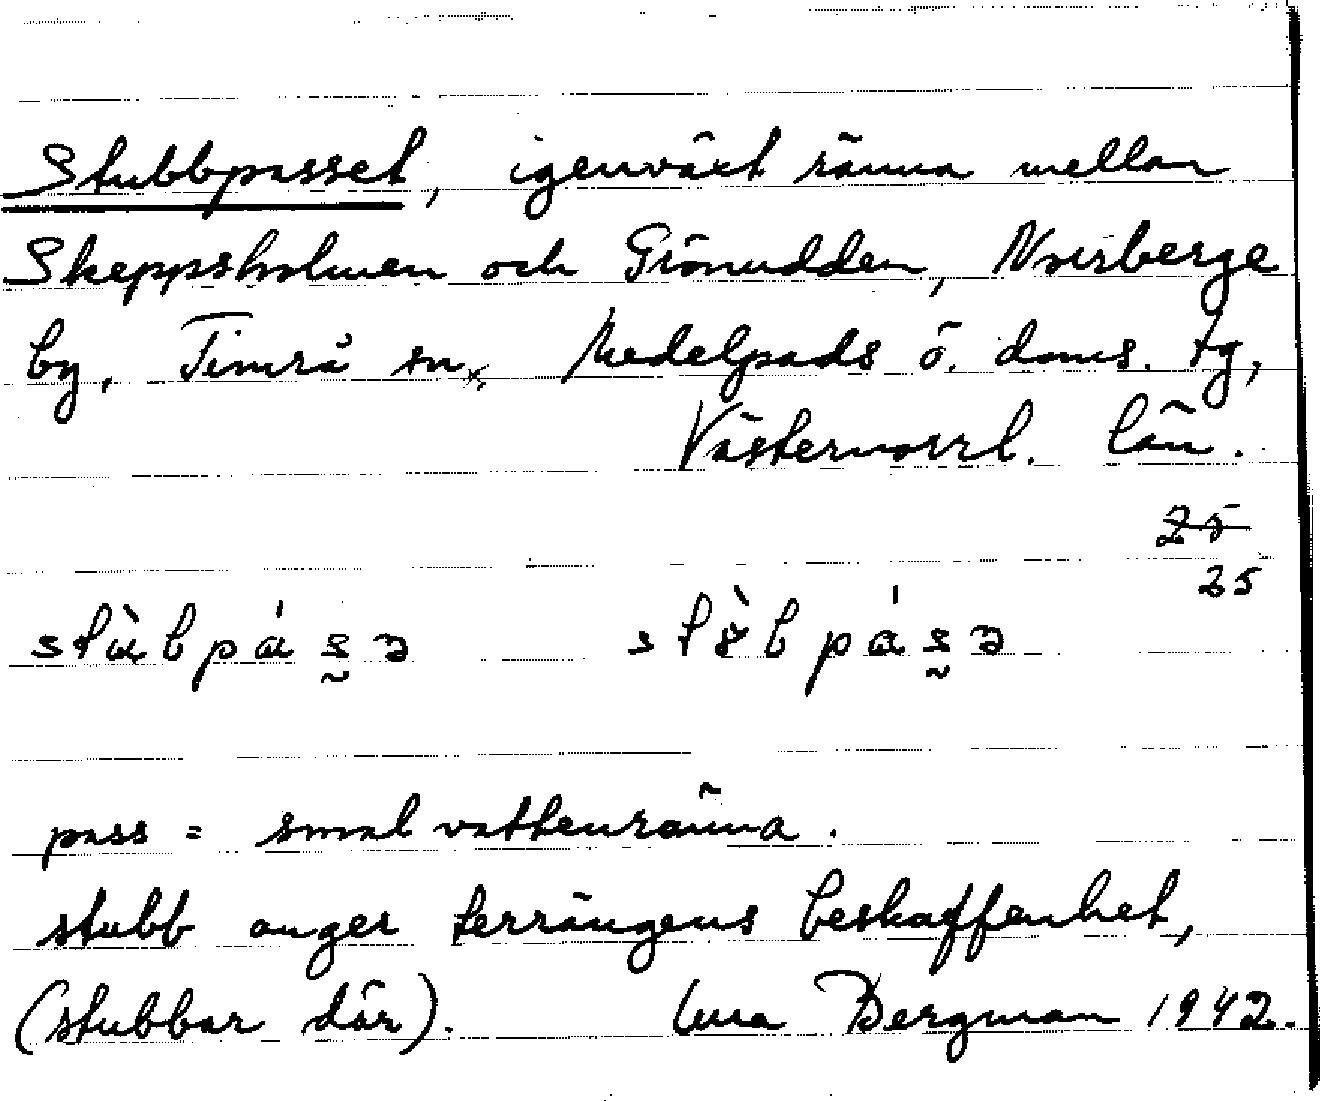 Stubbpasset, igenväxt ränna mellan
Skeppsholmen och Grönudden, Norrberge
by, Timrå sn, Medelpads ö. doms. tg,
Västernorrl. län.
25
25
pass = smal vattenränna.
stubb anger terrängens beskaffenhet,
(stubbar där). Bergman 1942.